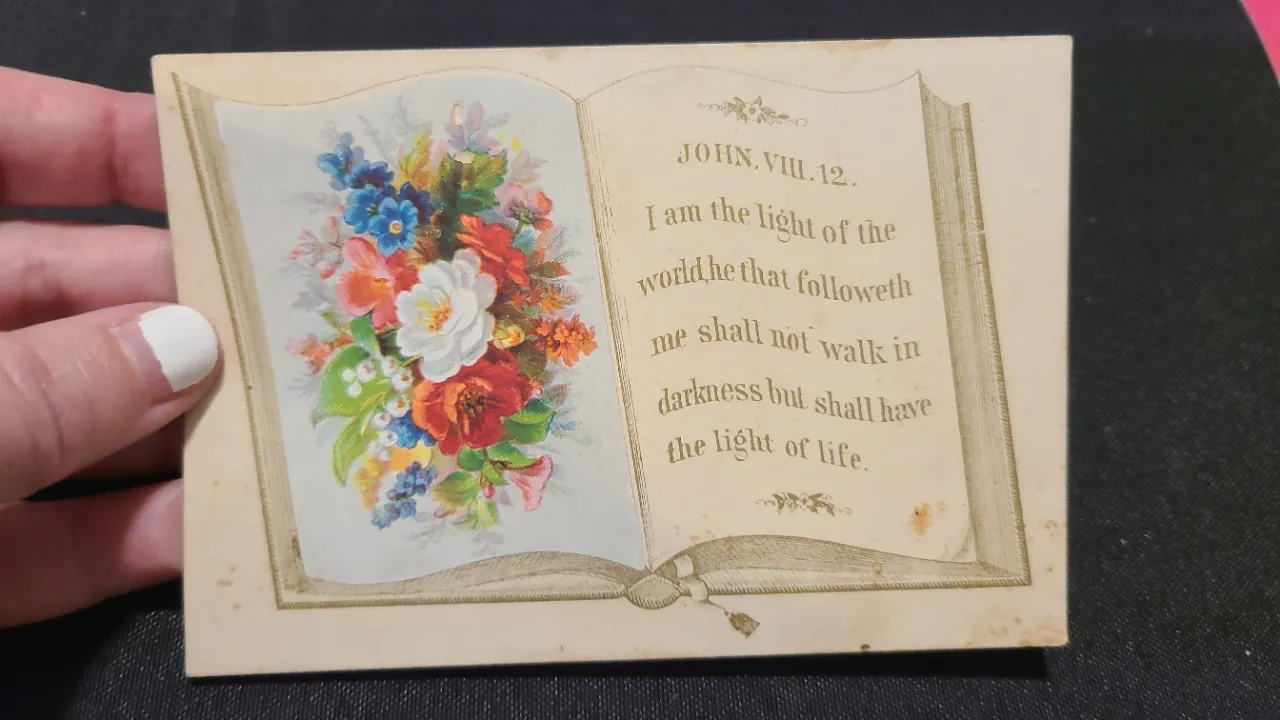 JOHN.VIII.12.
I am the light of the
world,he that followeth
me shall not walk in
darkness but shall have
the light of life.